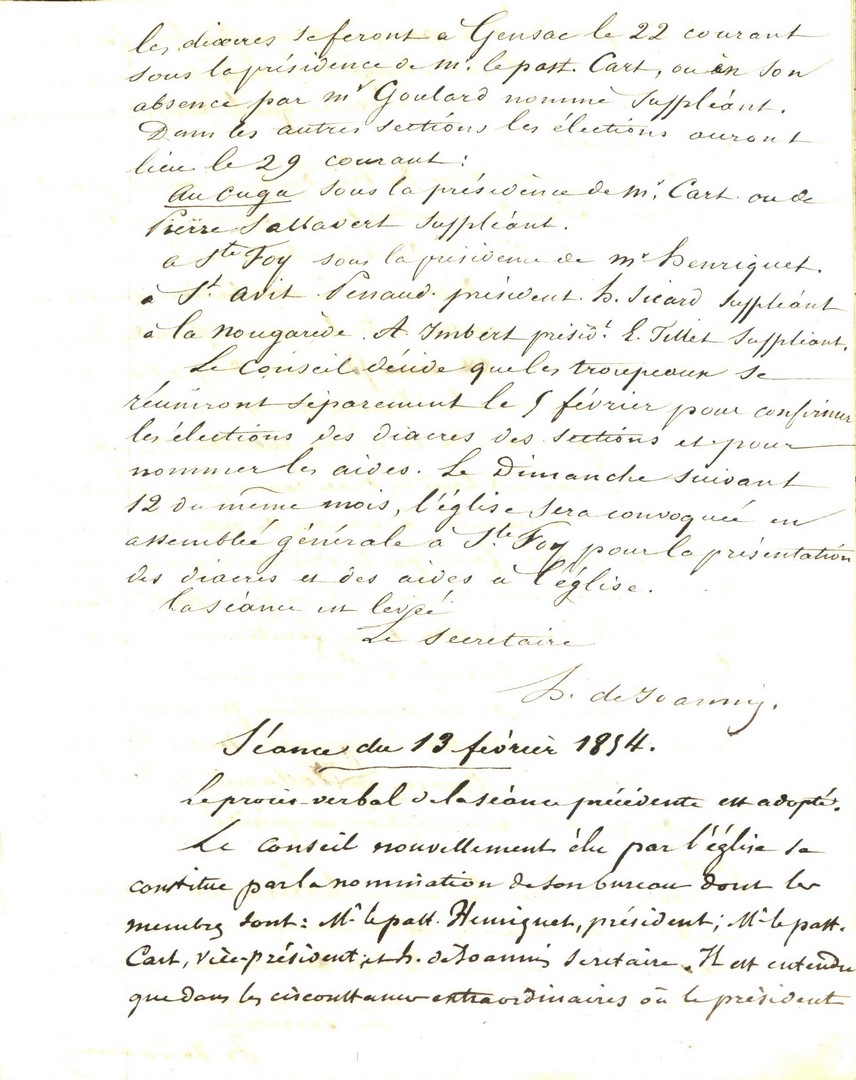 les diacres se feront à Gensac le 22 courant
sous la présidence de mr. le past. Cart, ou en son
absence par mr Goulard nommé suppléant.
Dans les autres sections les élections auront
lieu le 29 courant:
Au Cuga sous la présidence de mr. Cart ou de
Pierre Sallavert suppléant.
a Ste Foy sous la présidence de mr henriquet.
à St. Avit Penaud président h. Sicard suppléant
à la nougarède. A Imbert présidt. E. Tillet suppléant.
Le Conseil décide que les troupeaux se
réuniront séparement le 5 février pour confirmer
les élections des diacres des sections et pour
nommer les aides. Le Dimanche suivant
12 du même mois, l'église sera convoquée en
assemblée générale à Ste Foy pour la présentation
des diacres et des aides à l'église.
la séance est levée
Le Secretaire
h. de Joannis.
Séance du 13 février 1854.
Le procès-verbal de la séance précédente est adopté.
Le Conseil nouvellement élu par l'église se
constitue par la nomination de son bureau dont les
membres sont: Mr le past. Henriquet, président; Mr le past.
Cart, vice-président, et h. de Joannis secretaire. Il est entendu
que dans les circonstances extraordinaires où le président